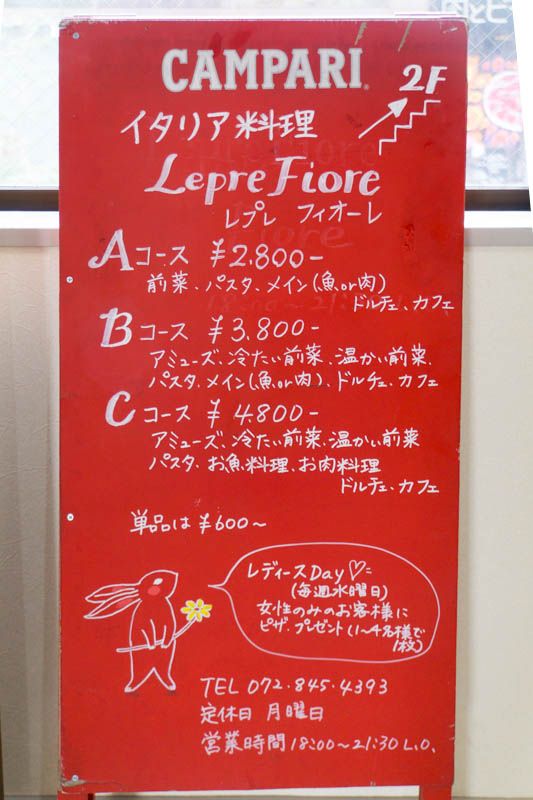 CAMPARI
2F
イタリア料理
Lepre Fiore
レプレ フィオーレ
Aコース ¥2.800-
前菜、パスタ、メイン(魚or肉)
ドルチェ、カフェ
Bコース ¥3.800-
アミューズ、冷たい前菜、温かい前菜、
パスタ、メイン(魚or肉)、ドルチェ、カフェ
Cコース ¥4.800-
アミューズ、冷たい前菜、温かい前菜
パスタ、お魚料理、お肉料理
ドルチェ、カフェ
単品は¥600～
レディースDay♡=
(毎週水曜日)
女性のみのお客様に
ピザ、プレゼント(1～4名様で
1枚)
TEL 072・845・4393
定休日 月曜日
営業時間 18:00～21:30 L.O.